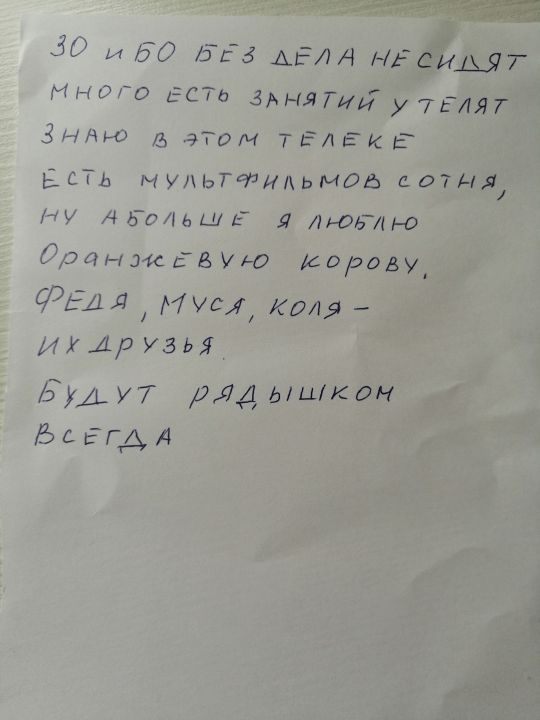 ЗО И БО БЕЗ ДЕЛА НЕ СИДЯТ
МНОГО ЕСТЬ ЗАНЯТИЙ У ТЕЛЯТ
ЗНАЮ В ЭТОМ ТЕЛЕКЕ
ЕСТЬ МУЛЬТФИЛЬМОВ СОТНЯ,
НУ А БОЛЬШЕ Я ЛЮБЛЮ
ОРАНЖЕВУЮ КОРОВУ.
ФЕДЯ, МУСЯ, КОЛЯ –
ИХ ДРУЗЬЯ.
БУДУТ РЯДЫШКОМ
ВСЕГДА